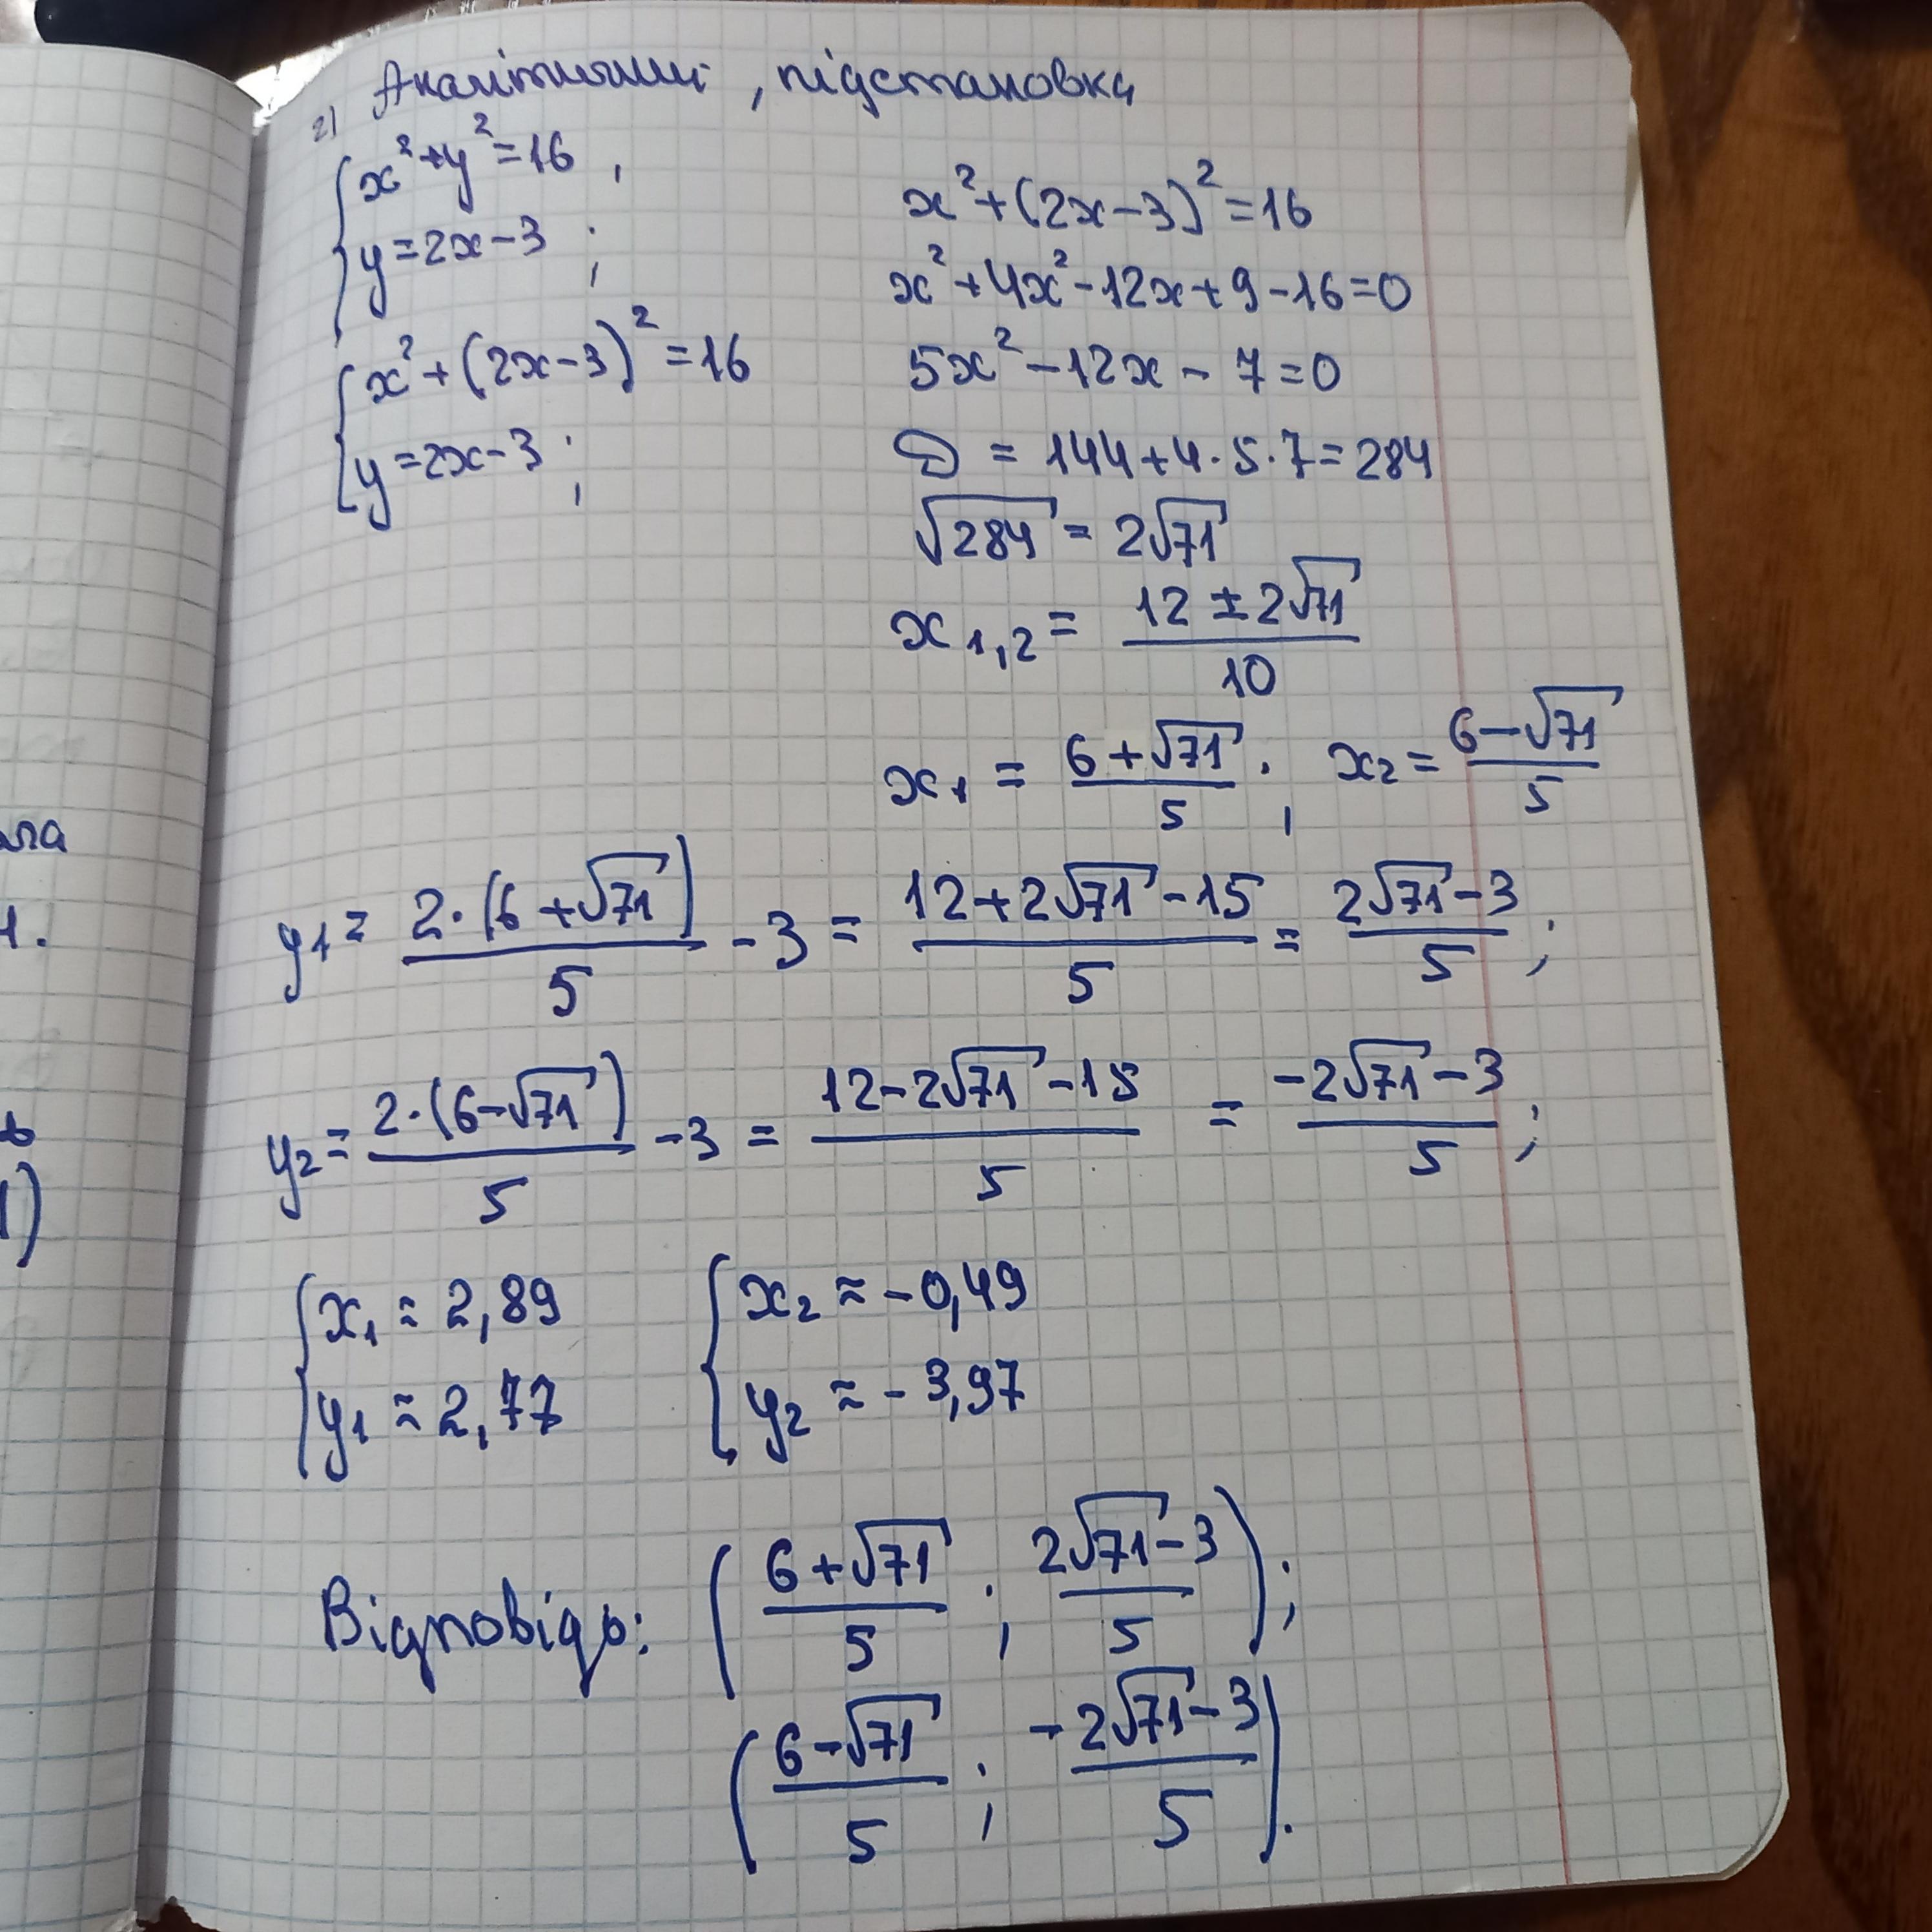 2) Аналітичний, підстановка
{ x² + y² = 16,
y = 2x - 3;
{ x² + (2x - 3)² = 16
y = 2x - 3;
x² + (2x - 3)² = 16
x² + 4x² - 12x + 9 - 16 = 0
5x² - 12x - 7 = 0
D = 144 + 4 · 5 · 7 = 284
√284 = 2√71
x₁,₂ = (12 ± 2√71)/10
x₁ = (6 + √71)/5; x₂ = (6 - √71)/5
y₁ = 2·(6 + √71)/5 - 3 = (12 + 2√71 - 15)/5 = (2√71 - 3)/5;
y₂ = 2·(6 - √71)/5 - 3 = (12 - 2√71 - 15)/5 = (-2√71 - 3)/5;
{ x₁ ≈ 2,89 { x₂ ≈ -0,49
y₁ ≈ 2,77 y₂ ≈ -3,97
Відповідь: ((6 + √71)/5; (2√71 - 3)/5);
((6 - √71)/5; (-2√71 - 3)/5).
1.